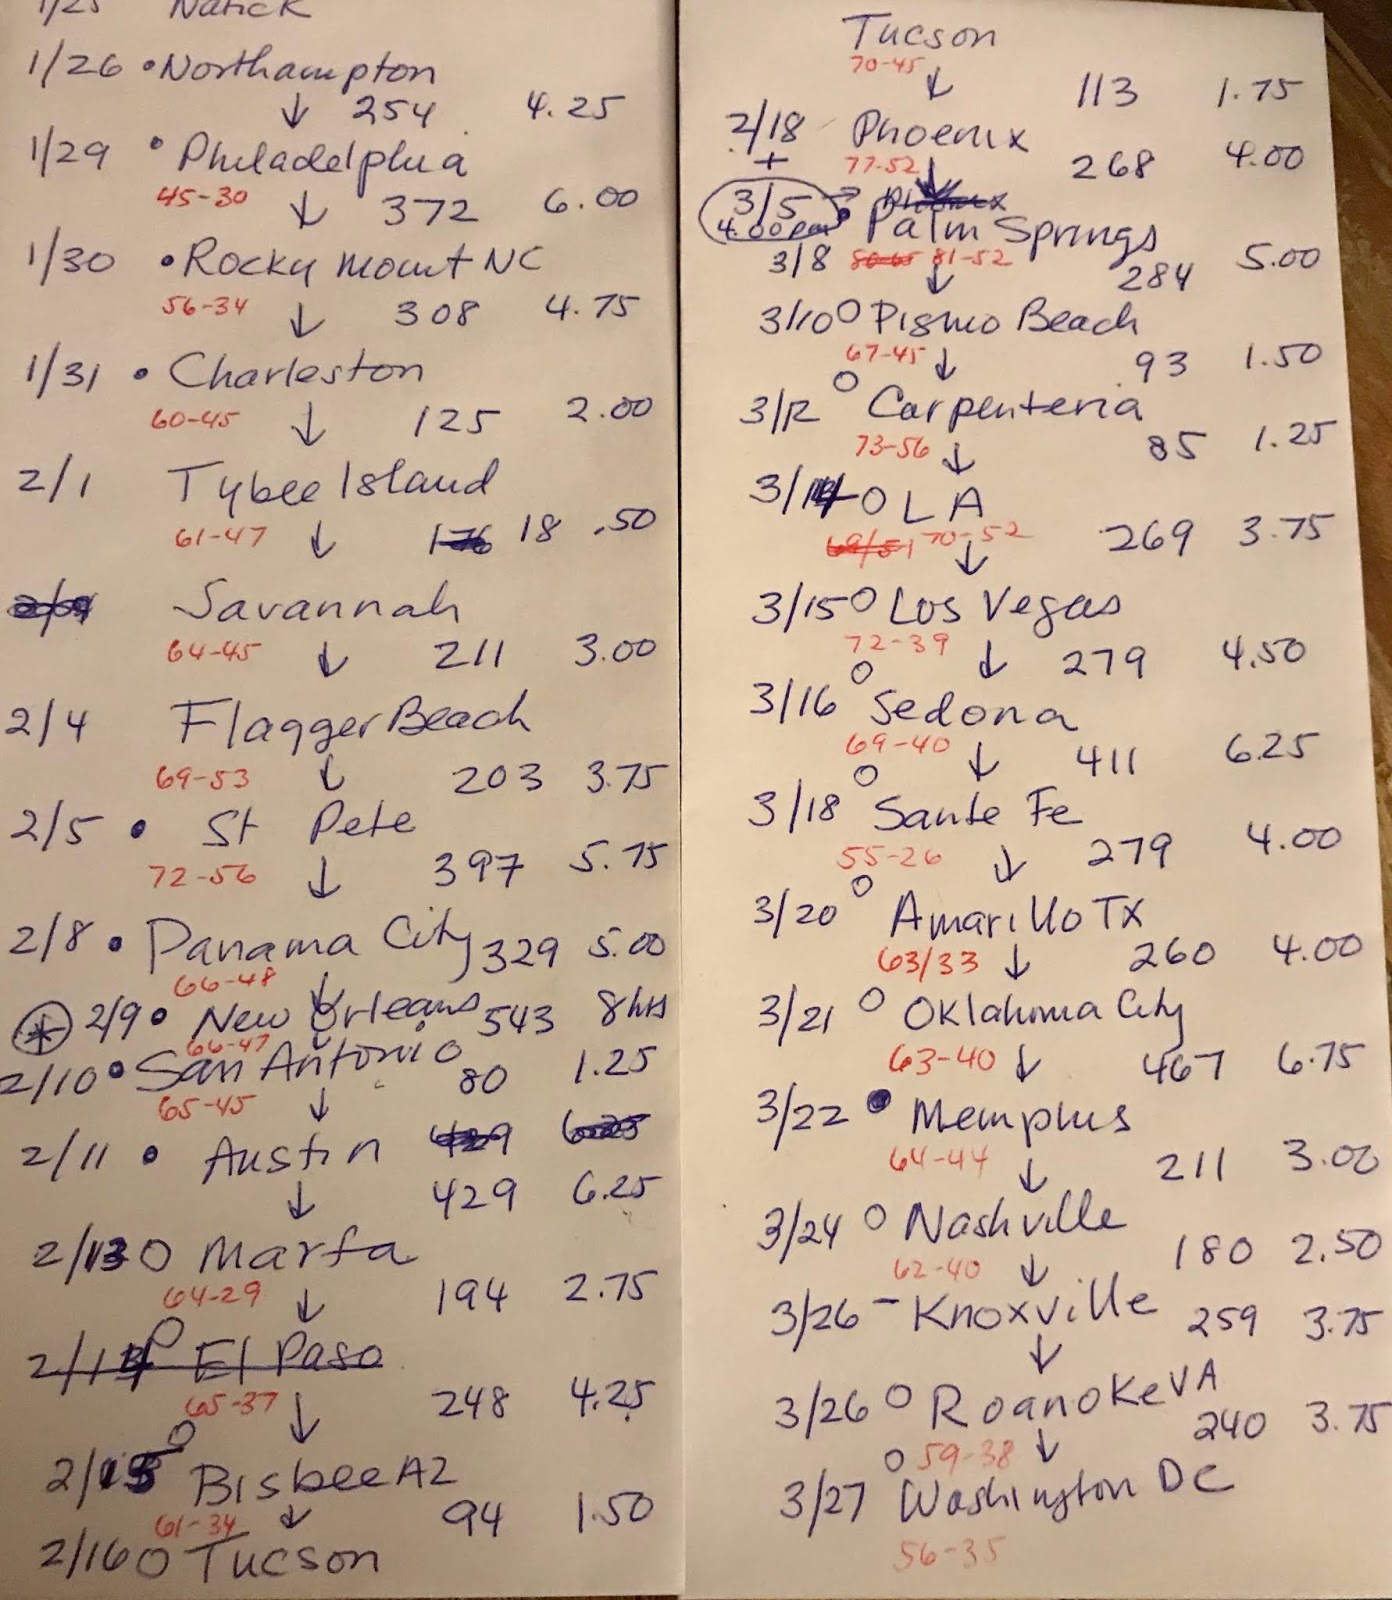 1/25 Natick
1/26 • Northampton
↓ 254 4.25
1/29 • Philadelphia
45-30 ↓ 372 6.00
1/30 • Rocky Mount NC
56-34 ↓ 308 4.75
1/31 • Charleston
60-45 ↓ 125 2.00
2/1 Tybee Island
61-47 ↓ 176 18 .50
Savannah
64-45 ↓ 211 3.00
2/4 Flagger Beach
69-53 ↓ 203 3.75
2/5 • St Pete
72-56 ↓ 397 5.75
2/8 • Panama City 329 5.00
66-48 ↓
* 2/9 • New Orleans 543 8 hrs
66-47 ↓
2/10 • San Antonio 80 1.25
65-45 ↓
2/11 • Austin 429 6.25
↓ 429 6.25
2/13 O Marfa
64-29 ↓ 194 2.75
2/14 O El Paso
65-37 ↓ 248 4.25
2/15 O Bisbee AZ
61-34 ↓ 94 1.50
2/16 O Tucson
Tucson
70-45 ↓ 113 1.75
2/18 Phoenix
+ 77-52 ↓ 268 4.00
3/5 → Phoenix
4:00 pm • Palm Springs
3/8 80-55 81-52 ↓ 284 5.00
3/10 O Pismo Beach
67-45 ↓ 93 1.50
3/12 O Carpenteria
73-56 ↓ 85 1.25
3/14 O LA
69/51 70-52 ↓ 269 3.75
3/15 O Los Vegas
72-39 ↓ 279 4.50
3/16 O Sedona
69-40 ↓ 411 6.25
3/18 O Sante Fe
55-26 ↓ 279 4.00
3/20 O Amarillo TX
63/33 ↓ 260 4.00
3/21 O Oklahoma City
63-40 ↓ 467 6.75
3/22 • Memphis
64-44 ↓ 211 3.00
3/24 O Nashville
62-40 ↓ 180 2.50
3/26 - Knoxville 259 3.75
↓
3/26 O Roanoke VA
59-38 ↓ 240 3.75
3/27 O Washington DC
56-35